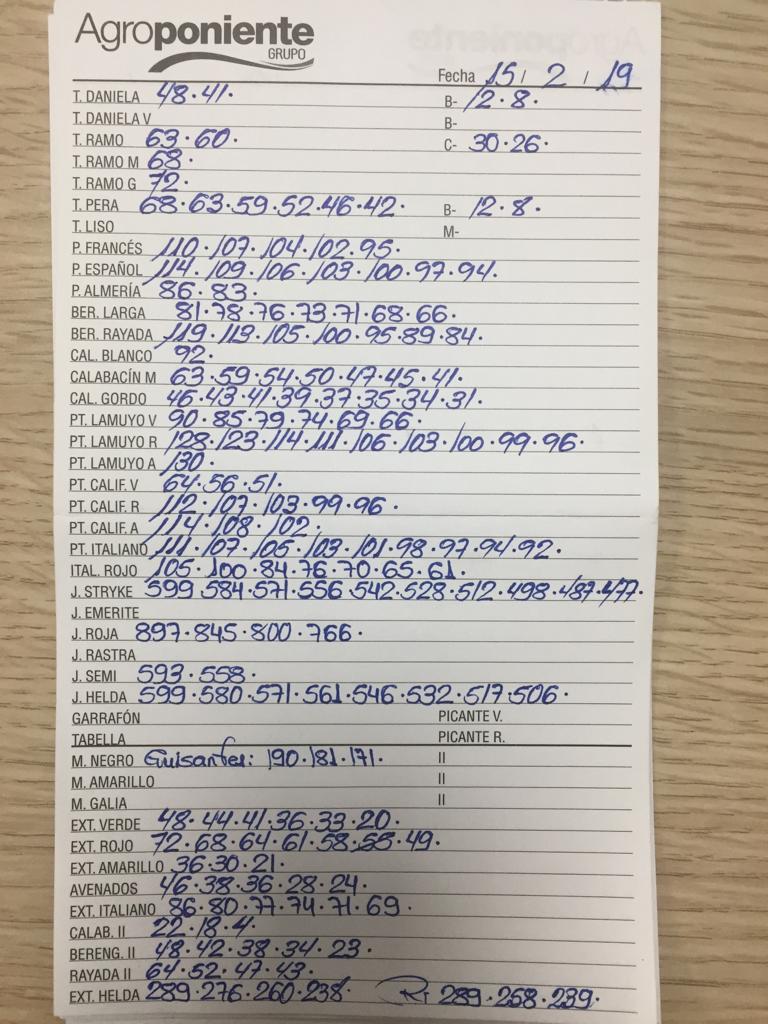 Agroponiente
GRUPO
Fecha 15 / 2 / 19
T. DANIELA 48·41· B- 12·8·
T. DANIELA V B-
T. RAMO 63·60· C- 30·26·
T. RAMO M 68·
T. RAMO G 72·
T. PERA 68·63·59·52·46·42· B- 12·8·
T. LISO M-
P. FRANCÉS 110·107·104·102·95·
P. ESPAÑOL 114·109·106·103·100·97·94·
P. ALMERÍA 86·83·
BER. LARGA 81·78·76·73·71·68·66·
BER. RAYADA 119·113·105·100·95·89·84·
CAL. BLANCO 92·
CALABACÍN M 63·59·54·50·47·45·41·
CAL. GORDO 46·43·41·39·37·35·34·31·
PT. LAMUYO V 90·85·79·74·69·66·
PT. LAMUYO R 128·123·114·111·106·103·100·99·96·
PT. LAMUYO A 130·
PT. CALIF. V 64·56·51·
PT. CALIF. R 112·107·103·99·96·
PT. CALIF. A 114·108·102·
PT. ITALIANO 111·107·105·103·101·98·97·94·92·
ITAL. ROJO 105·100·84·76·70·65·61·
J. STRYKE 599 584·571·556 542·528·512·498·487·477·
J. EMERITE
J. ROJA 897·845·800·766·
J. RASTRA
J. SEMI 593·558·
J. HELDA 599·580·571·561·546·532·517·506·
GARRAFÓN PICANTE V.
TABELLA PICANTE R.
M. NEGRO Guisantes: 190·181·171· II
M. AMARILLO II
M. GALIA II
EXT. VERDE 48·44·41·36·33·20·
EXT. ROJO 72·68·64·61·58·55·49·
EXT. AMARILLO 36·30·21·
AVENADOS 46·38·36·28·24·
EXT. ITALIANO 86·80·77·74·71·69·
CALAB. II 22·18·4·
BERENG. II 48·42·38·34·23·
RAYADA II 64·52·47·43·
EXT. HELDA 289·276·260·238· R: 289·258·239·